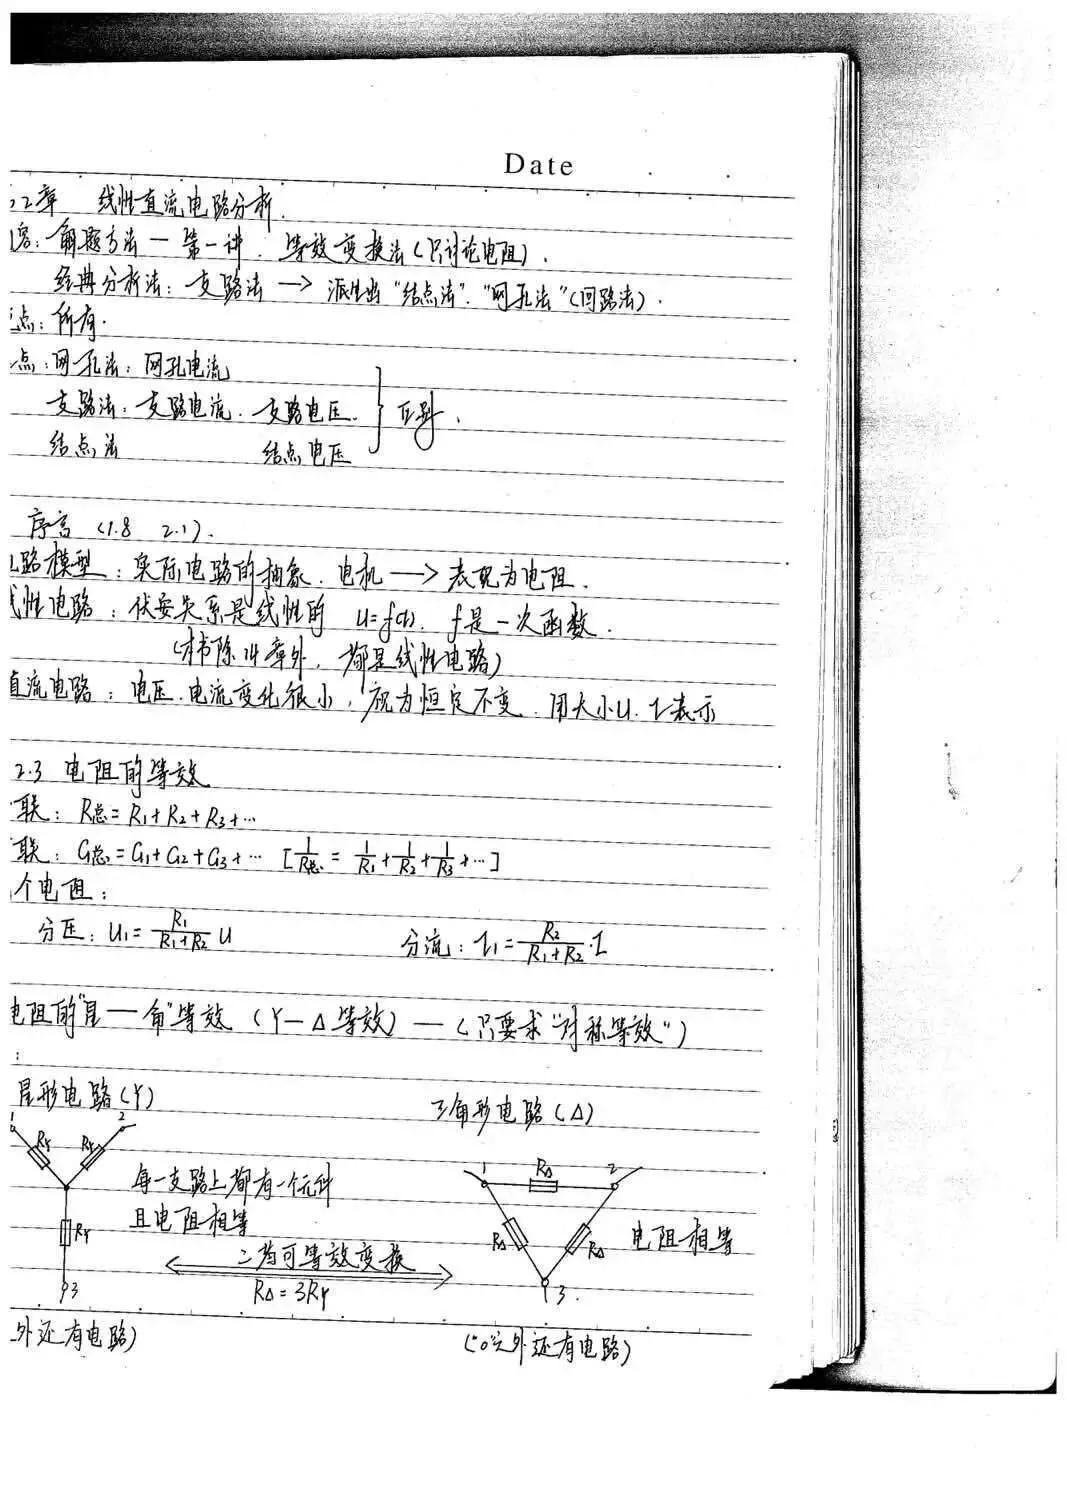 Date
2章 线性直流电路分析.
容: 解题方法 — 第一讲. 等效变换法(只讨论电阻).
经典分析法: 支路法 → 派生出"结点法". "网孔法"(回路法).
点: 所有.
点: 网孔法: 网孔电流
支路法: 支路电流. 支路电压. } 区别.
结点法 结点电压
序言 (1.8 2.1).
路模型: 实际电路的抽象. 电机 → 表现为电阻.
性电路: 伏安关系是线性的 u=f(i). f是一次函数.
(本书除14章外, 都是线性电路)
直流电路: 电压.电流变化很小, 视为恒定不变. 用大小U. I表示
2.3 电阻的等效
联: R总=R1+R2+R3+…
联: G总=G1+G2+G3+… [1/R总 = 1/R1+1/R2+1/R3+…]
个电阻:
分压: U1=R1/(R1+R2) U 分流: I1=R2/(R1+R2)·I
电阻的"星—角"等效 (Y—Δ等效) — (只要求"对称等效")
:
星形电路(Y) 三角形电路(Δ)
1 2 1 RΔ 2
RY RY
每一支路上都有一个元件
且电阻相等
RY RΔ RΔ 电阻相等
二者可等效变换
3 RΔ=3RY 3.
外还有电路) ("o"外还有电路)